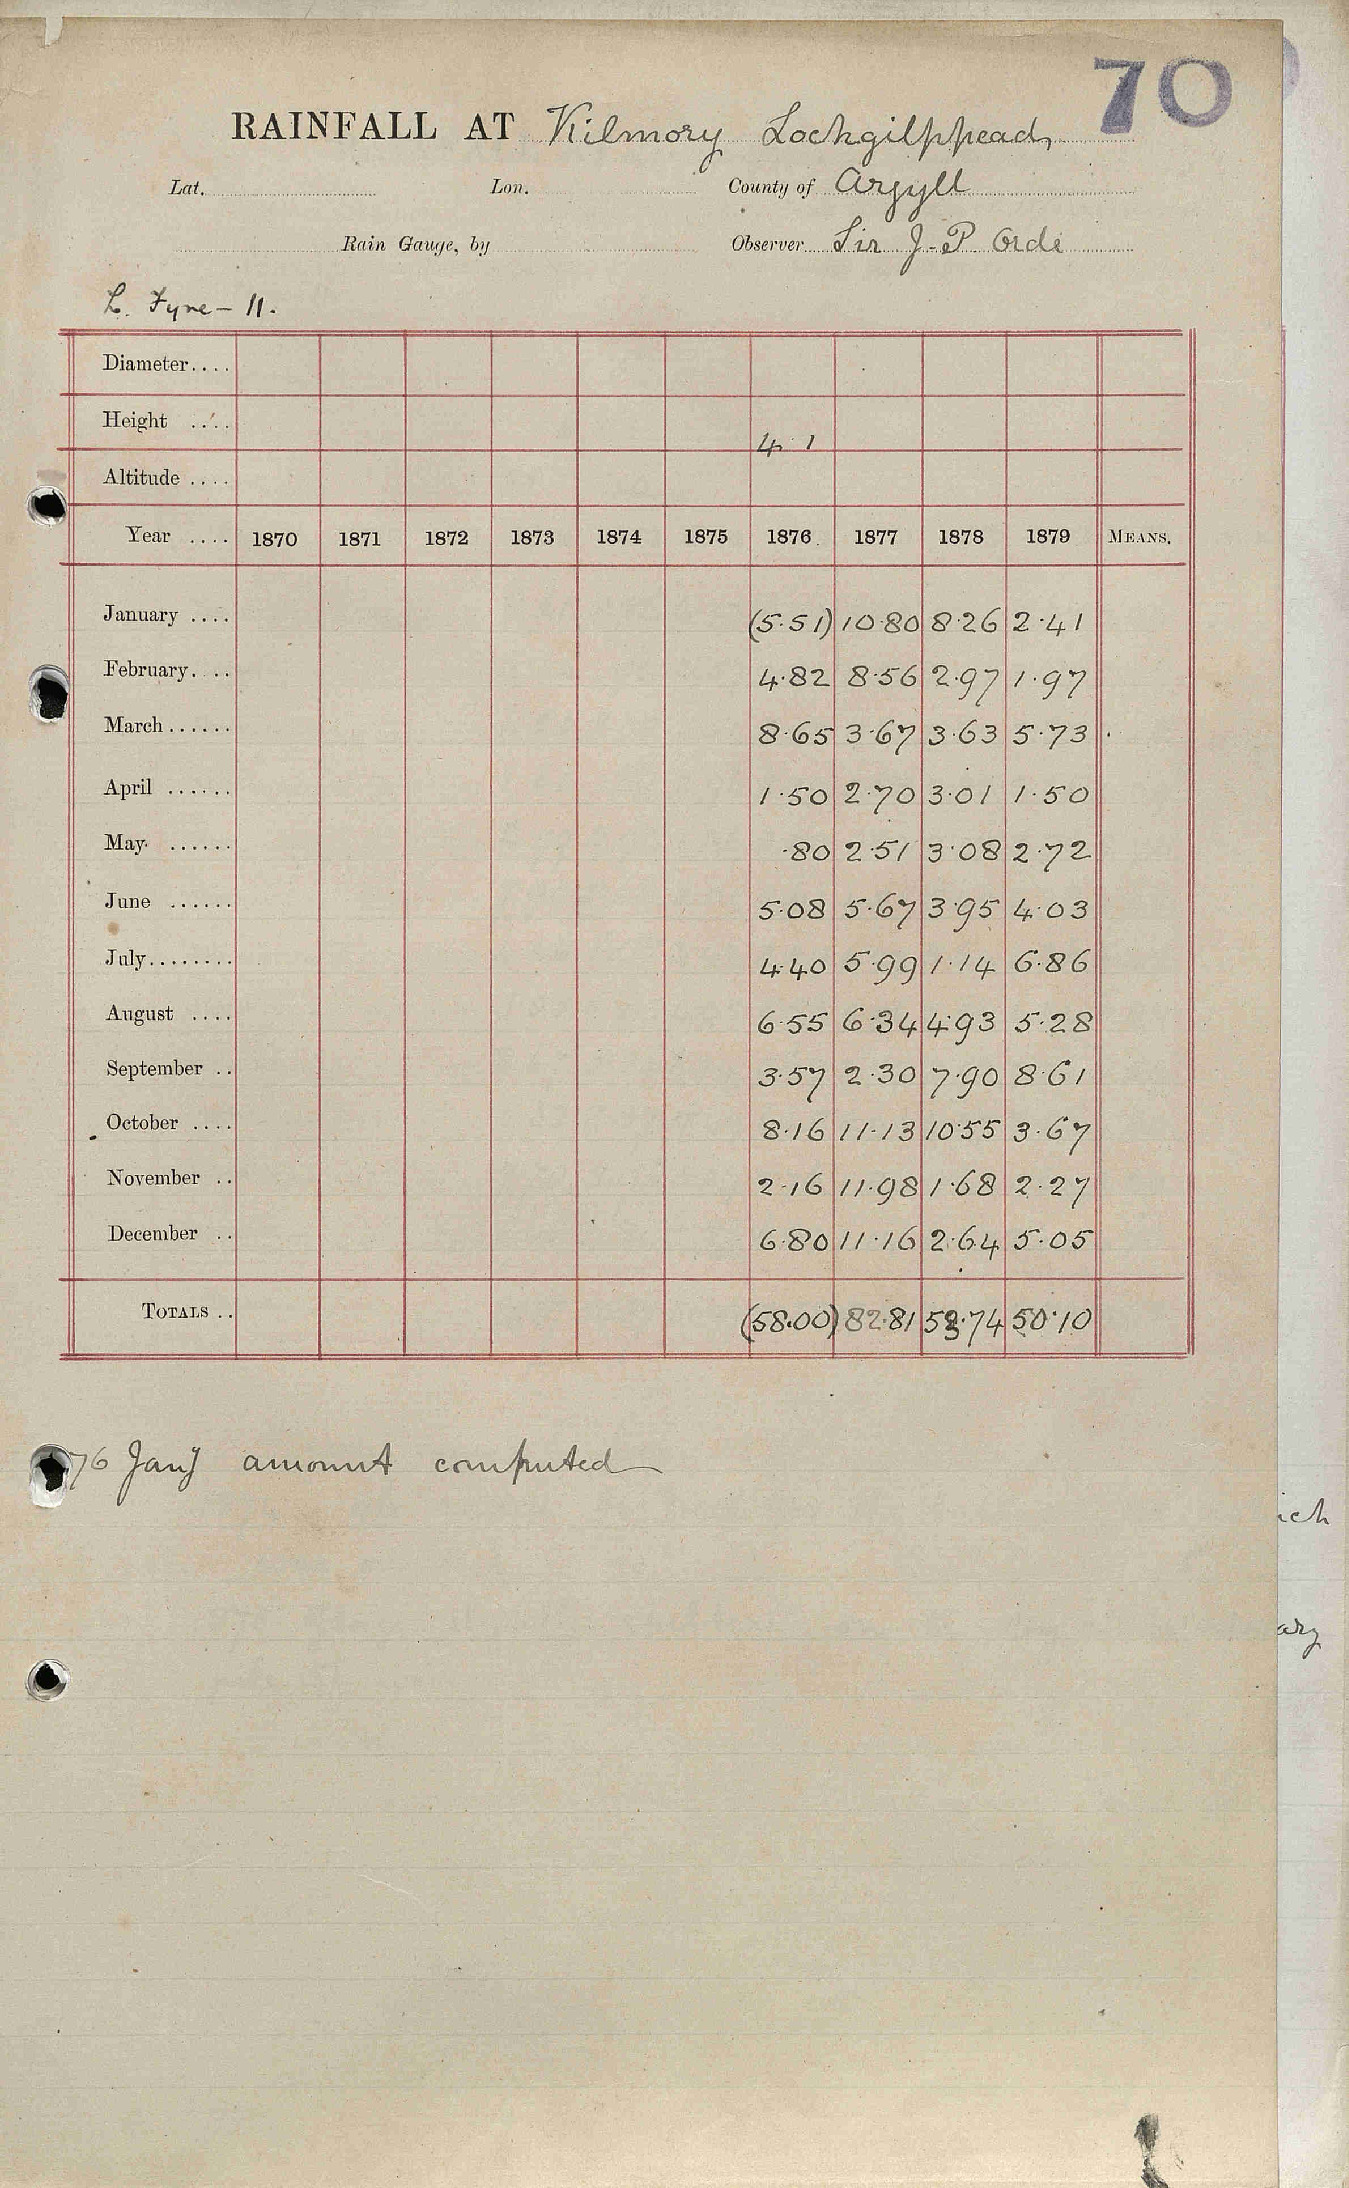 70
RAINFALL AT Kilmory Lochgilphead,
Lat. Lon. County of Argyll
Rain Gauge, by Observer Sir J. P. Orde
L. Fyne - 11.
Diameter....
Height ....
4 1
Altitude ....
Year .... 1870 1871 1872 1873 1874 1875 1876 1877 1878 1879 MEANS.
January .... (5.51) 10.80 8.26 2.41
February.... 4.82 8.56 2.97 1.97
March...... 8.65 3.67 3.63 5.73
April ...... 1.50 2.70 3.01 1.50
May ...... .80 2.51 3.08 2.72
June ...... 5.08 5.67 3.95 4.03
July........ 4.40 5.99 1.14 6.86
August .... 6.55 6.34 4.93 5.28
September .. 3.57 2.30 7.90 8.61
October .... 8.16 11.13 10.55 3.67
November .. 2.16 11.98 1.68 2.27
December .. 6.80 11.16 2.64 5.05
TOTALS .. (58.00) 82.81 53.74 50.10
76 Jany amount computed
ich
ary